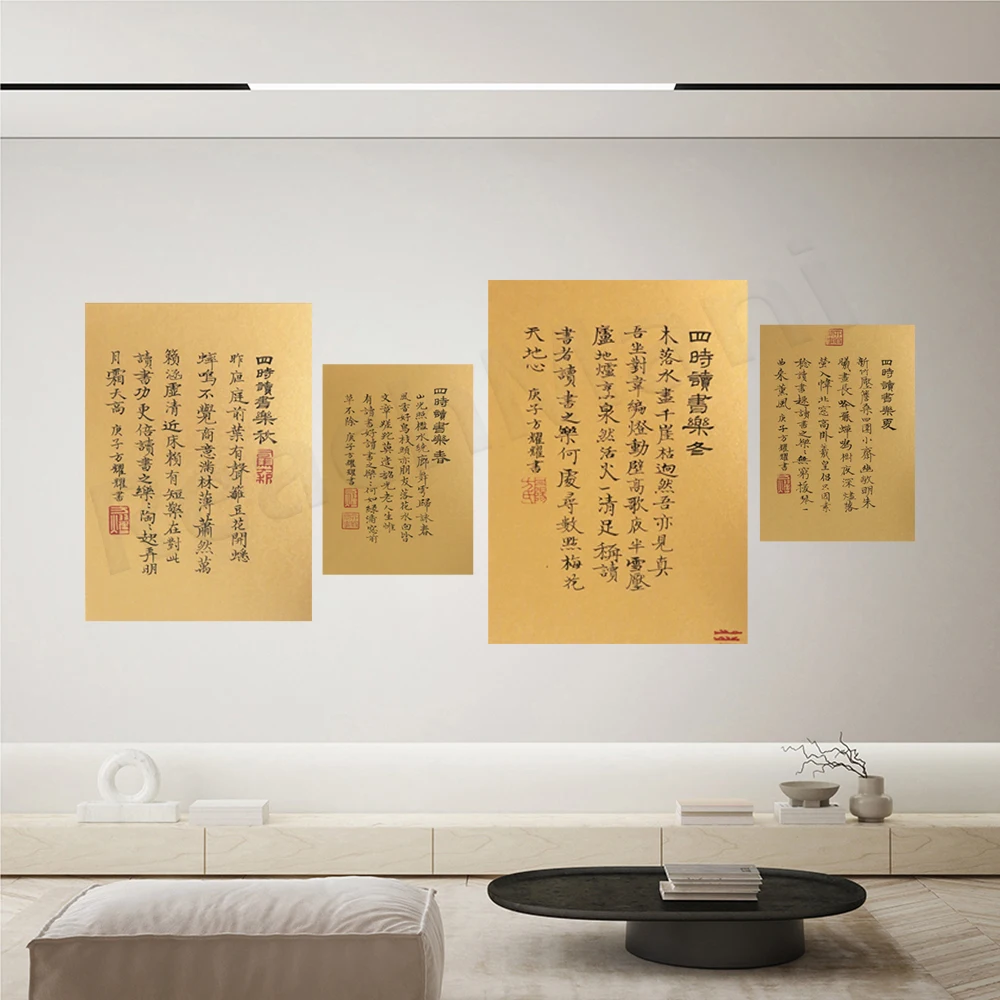 四時讀書樂秋
昨夜庭前葉有聲籬豆花開蟋
蟀鳴不覺商意滿林薄蕭然萬
籟涵虛清近床賴有短檠在對此
讀書功更倍讀書之樂〻陶〻起弄明
月霜天高 庚子方耀耀書
四時讀書樂 春
山光照檻水繞廊舞雩歸詠春
風香好鳥枝頭亦朋友落花水面皆
文章蹉跎莫遣韶光老人生唯
有讀書好讀書之樂〻何如綠滿窗前
草不除 庚子方耀耀書
四時讀書樂冬
木落水盡千崖枯迥然吾亦見真
吾坐對韋編燈動壁高歌夜半雪壓
廬地爐烹泉然活火一清足稱讀
書者讀書之樂何處尋數點梅花
天地心 庚子方耀耀書
四時讀書樂夏
新竹壓簷桑四圍小齋幽敞明朱
曦晝長吟罷蟬鳴樹夜深燼落
螢入幃北窗高臥羲皇侶只因素
稔讀書趣讀書之樂〻無窮撥琴一
曲來薰風 庚子方耀耀書